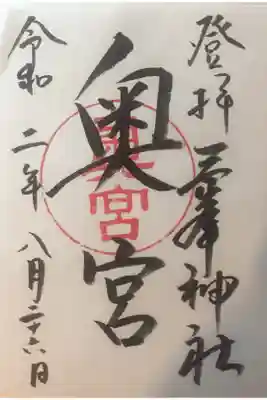 登拝 三峯神社
奥宮
奥宮
令和二年 八月二十六日